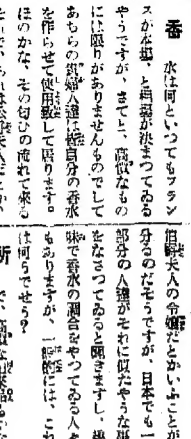 香 水は何といつてもフラン
スが本場、と相場が決まつてゐる
やうですが、さてと、高価なもの
には限りがありませんものでして
あちらの貴婦人達は皆自分の香水
を作らせて使用致して居ります。
ほのかな、その匂ひの流れて来る
伯爵夫人の令嬢だとかいふことが
分るのだそうですが、日本でも一
部分の人達がそれに似たやうな
をなさつてゐると聞きますし、趣
味で香水の調合をやつてゐる人々
もありますが、一般的には、これ
は何うでせう?